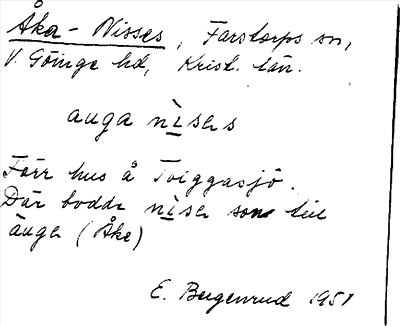 Åka-Nisses, Farstorps sn,
V. Göinge hd, Krist. län.
auga nìsɘs
Förr hus å Tviggasjö.
Där bodde nìsɘ son till
ăugɘ (Åke)
E. Bugenrud 1951